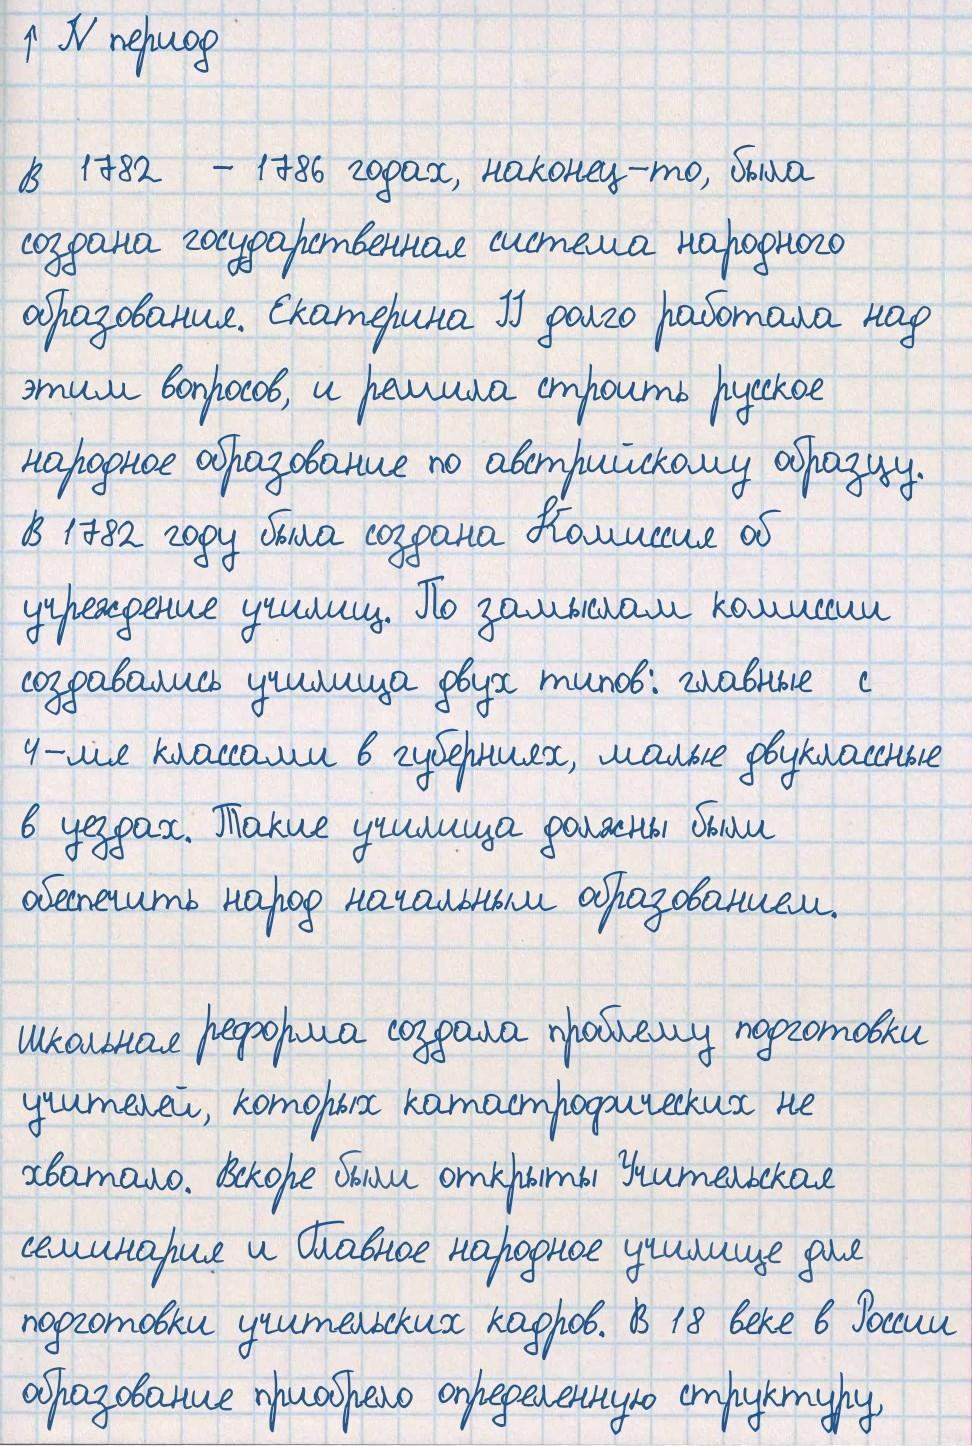 ↑ IV период
В 1782 – 1786 годах, наконец-то, была
создана государственная система народного
образования. Екатерина II долго работала над
этим вопросов, и решила строить русское
народное образование по австрийскому образцу.
В 1782 году была создана Комиссия об
учреждение училищ. По замыслам комиссии
создавались училища двух типов: главные с
4-мя классами в губерниях, малые двуклассные
в уездах. Такие училища должны были
обеспечить народ начальным образованием.
Школьная реформа создала проблему подготовки
учителей, которых катастрофических не
хватало. Вскоре были открыты Учительская
семинария и Главное народное училище для
подготовки учительских кадров. В 18 веке в России
образование приобрело определенную структуру,